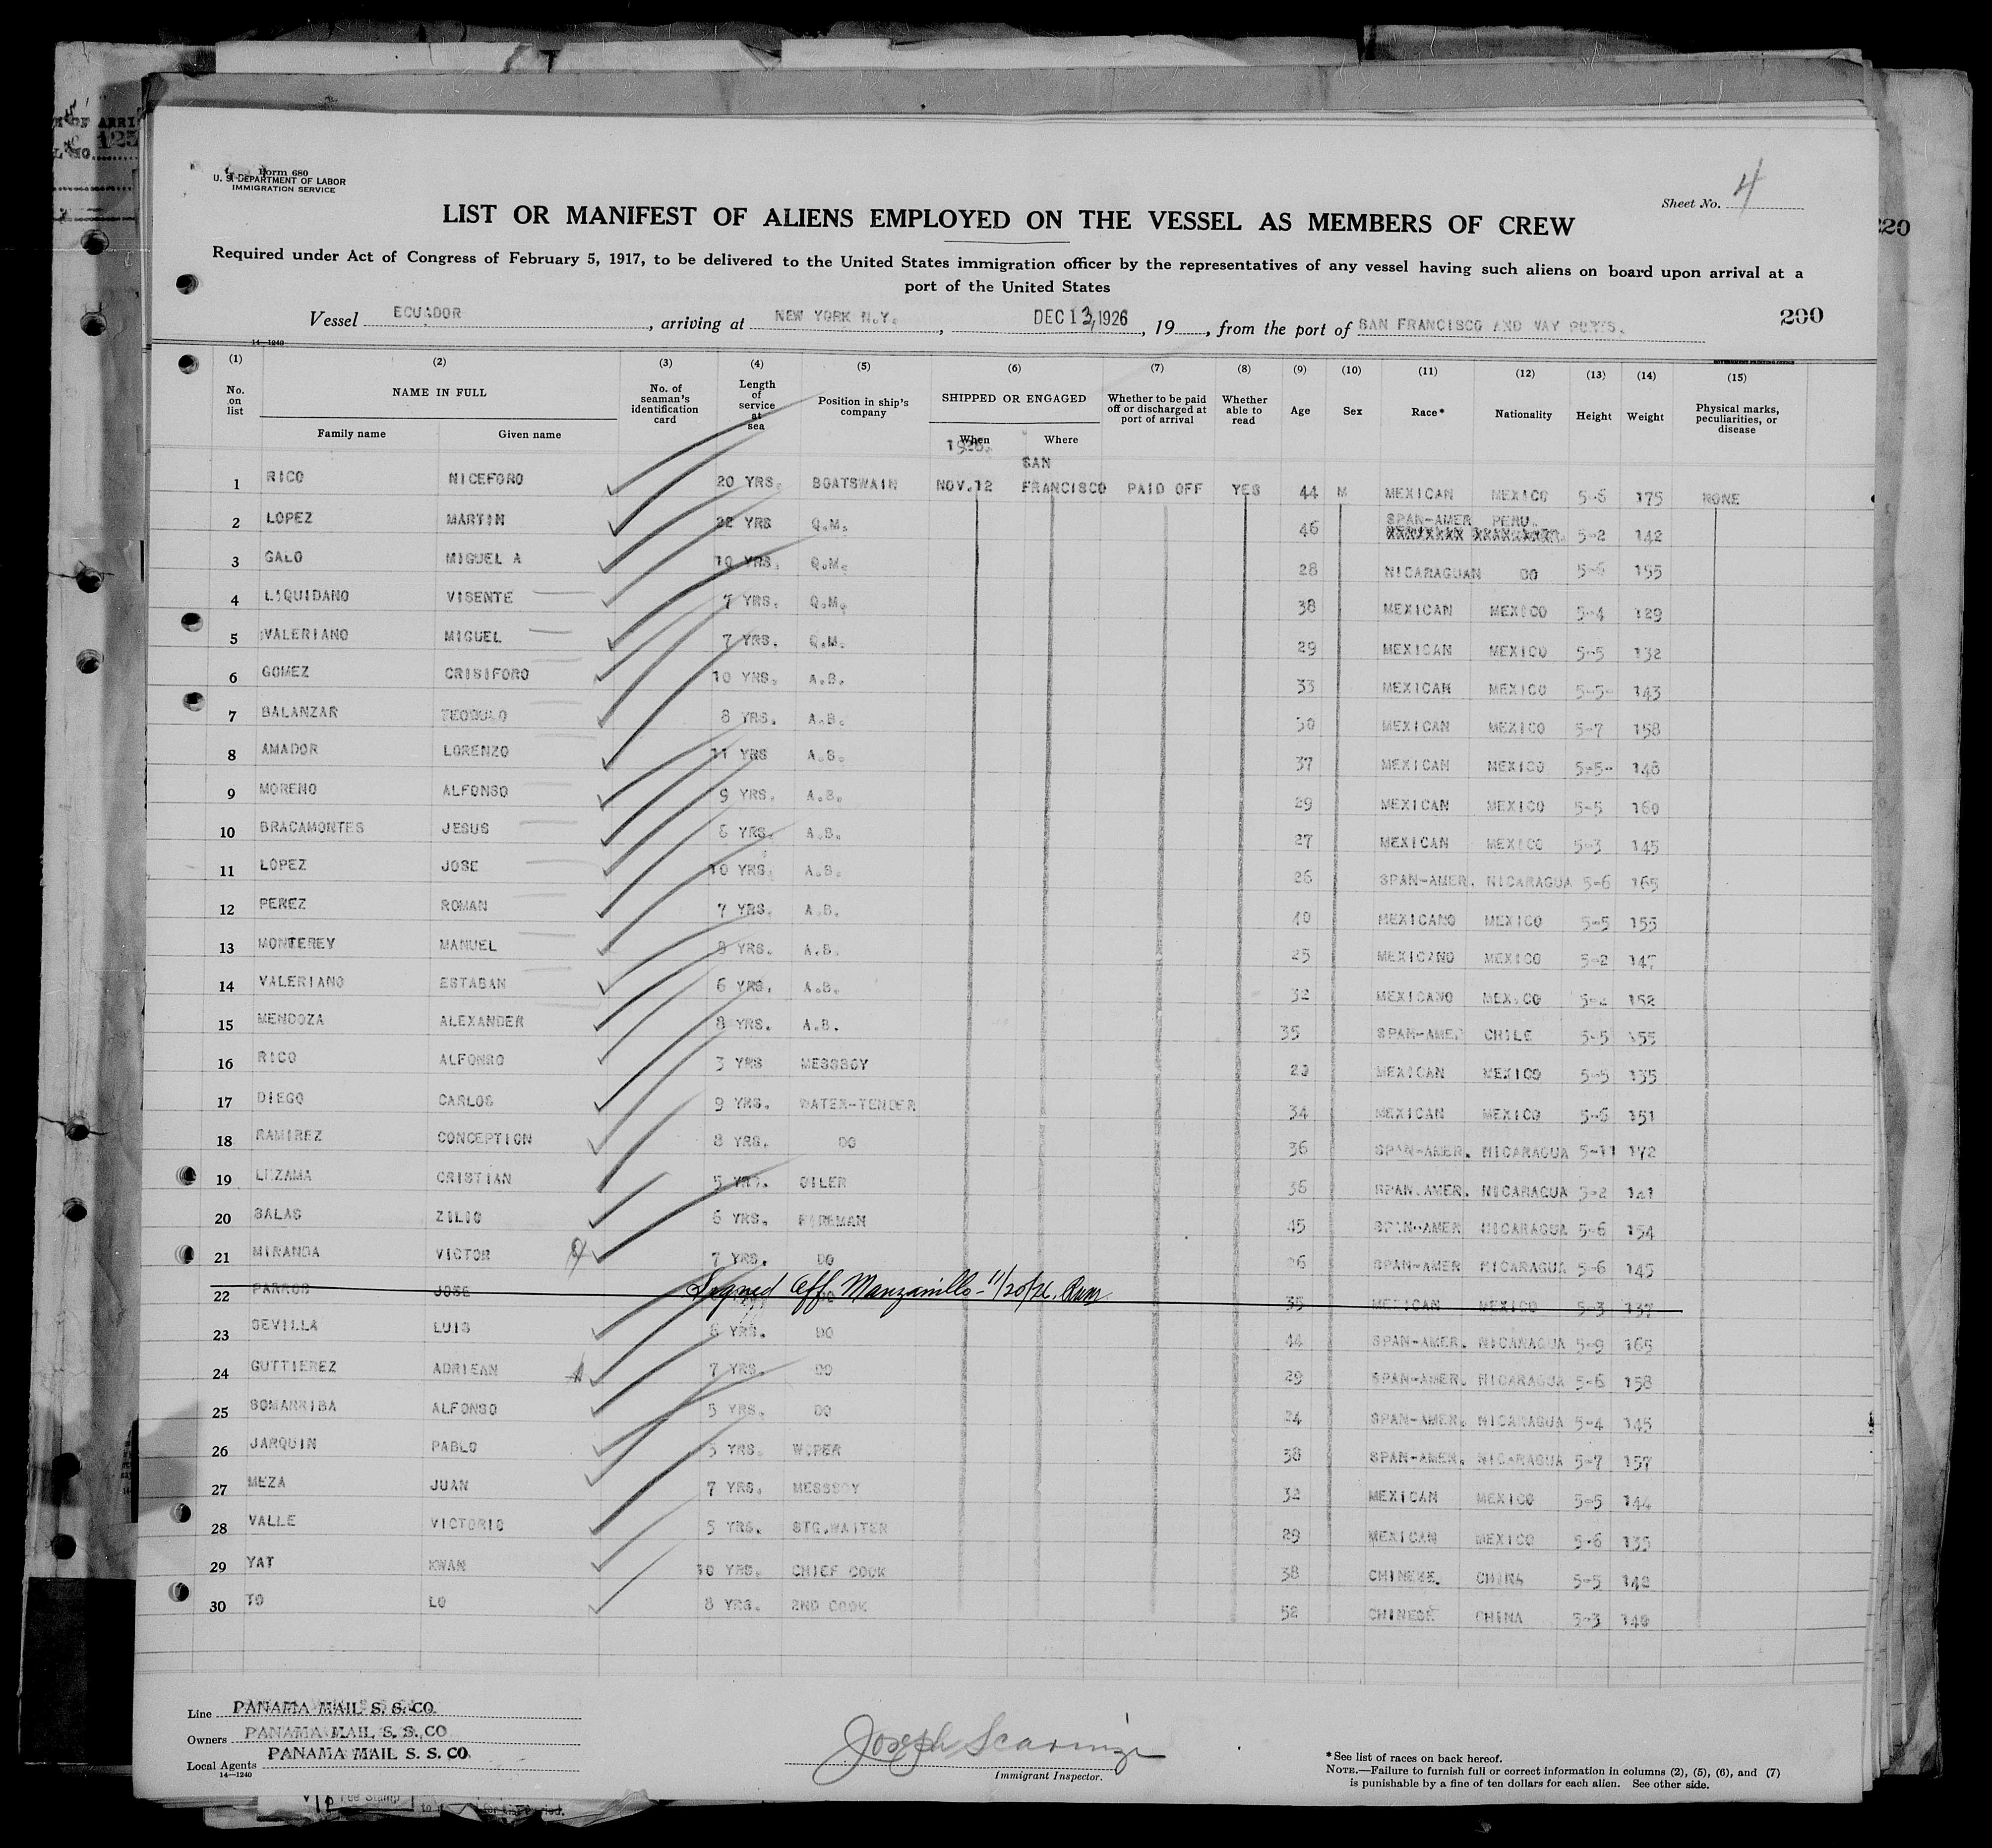 Form 680
U. S. DEPARTMENT OF LABOR
IMMIGRATION SERVICE
Sheet No. 4
LIST OR MANIFEST OF ALIENS EMPLOYED ON THE VESSEL AS MEMBERS OF CREW
Required under Act of Congress of February 5, 1917, to be delivered to the United States immigration officer by the representatives of any vessel having such aliens on board upon arrival at a
port of the United States
200
Vessel ECUADOR, arriving at NEW YORK N.Y., DEC 13, 1926, 19, from the port of SAN FRANCISCO AND WAY PORTS.
14—1240
(1) (2) (3) (4) (5) (6) (7) (8) (9) (10) (11) (12) (13) (14) (15)
No. on list NAME IN FULL Family name Given name No. of seaman's identification card Length of service at sea Position in ship's company SHIPPED OR ENGAGED When Where Whether to be paid off or discharged at port of arrival Whether able to read Age Sex Race* Nationality Height Weight Physical marks, peculiarities, or disease
1926. SAN
1 RICO NICEFORO 20 YRS. BOATSWAIN NOV.12 FRANCISCO PAID OFF YES 44 M MEXICAN MEXICO 5-6 175 NONE
2 LOPEZ MARTIN 22 YRS Q.M. 46 SPAN-AMER PERU. 5-2 142
3 GALO MIGUEL A 10 YRS. Q.M. 28 NICARAGUAN DO 5-6 155
4 LIQUIDANO VISENTE 7 YRS. Q.M. 38 MEXICAN MEXICO 5-4 129
5 VALERIANO MIGUEL 7 YRS. Q.M. 29 MEXICAN MEXICO 5-5 132
6 GOMEZ CRISIFORO 10 YRS. A.B. 33 MEXICAN MEXICO 5-5- 143
7 BALANZAR TEODULO 8 YRS. A.B. 30 MEXICAN MEXICO 5-7 158
8 AMADOR LORENZO 11 YRS A.B. 37 MEXICAN MEXICO 5-5- 148
9 MORENO ALFONSO 9 YRS. A.B. 29 MEXICAN MEXICO 5-5 160
10 BRACAMONTES JESUS 6 YRS. A.B. 27 MEXICAN MEXICO 5-3 145
11 LOPEZ JOSE 10 YRS. A.B. 26 SPAN-AMER. NICARAGUA 5-6 165
12 PEREZ ROMAN 7 YRS. A.B. 40 MEXICANO MEXICO 5-5 155
13 MONTEREY MANUEL YRS. A.B. 25 MEXICANO MEXICO 5-2 147
14 VALERIANO ESTABAN 6 YRS. A.B. 32 MEXICANO MEXICO 5-2 152
15 MENDOZA ALEXANDER 8 YRS. A.B. 35 SPAN-AMER CHILE 5-5 155
16 RICO ALFONSO 3 YRS MESSBOY 23 MEXICAN MEXICO 5-5 135
17 DIEGO CARLOS 9 YRS. WATER-TENDER 34 MEXICAN MEXICO 5-6 151
18 RAMIREZ CONCEPTION 8 YRS. DO 36 SPAN-AMER. NICARAGUA 5-11 172
19 LEZAMA CRISTIAN 5 YRS. OILER 36 SPAN.AMER. NICARAGUA 5-2 141
20 SALAS ZILIO 6 YRS. FIREMAN 45 SPAN-AMER NICARAGUA 5-6 154
21 MIRANDA VICTOR 7 YRS. DO 26 SPAN-AMER NICARAGUA 5-6 145
22 JOSE Signed Off Manzanillo - 11/20/26. 35 MEXICAN MEXICO 5-3 137
23 SEVILLA LUIS 6 YRS. DO 44 SPAN-AMER. NICARAGUA 5-9 165
24 GUTTIEREZ ADRIEAN 7 YRS. DO 29 SPAN-AMER. NICARAGUA 5-6 158
25 SOMARRIBA ALFONSO 5 YRS. DO 24 SPAN-AMER. NICARAGUA 5-4 145
26 JARQUIN PABLO 5 YRS. WIPER 38 SPAN-AMER. NICARAGUA 5-7 157
27 MEZA JUAN 7 YRS. MESSBOY 32 MEXICAN MEXICO 5-5 144
28 VALLE VICTORIO 5 YRS. STG.WAITER 29 MEXICAN MEXICO 5-6 135
29 YAT KWAN 10 YRS. CHIEF COOK 38 CHINESE. CHINA 5-5 142
30 TO LO 8 YRS. 2ND COOK 52 CHINESE CHINA 5-3 148
Line PANAMA MAIL S. S. CO.
Owners PANAMA MAIL S. S. CO
Local Agents PANAMA MAIL S. S. CO.
14—1240
Joseph Scarinzi
Immigrant Inspector.
*See list of races on back hereof.
NOTE.—Failure to furnish full or correct information in columns (2), (5), (6), and (7)
is punishable by a fine of ten dollars for each alien. See other side.